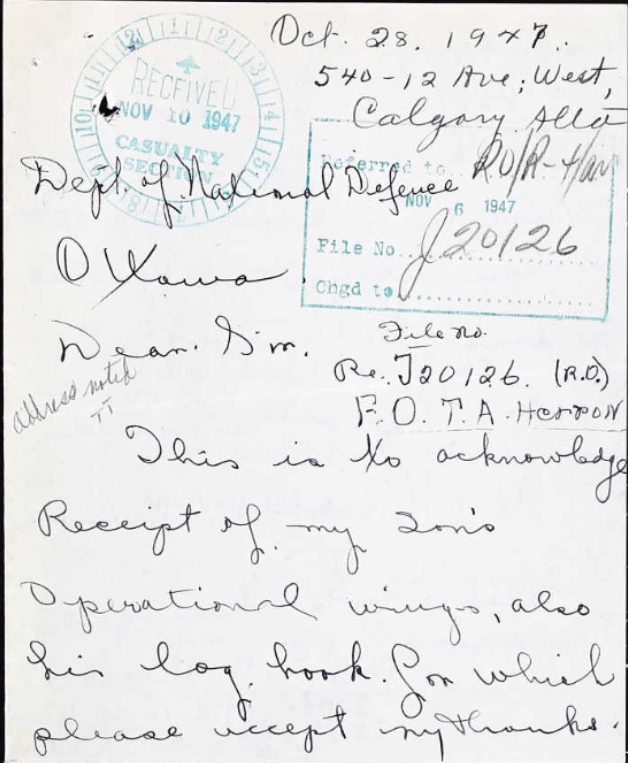 Oct. 28. 1947.
540-12 Ave; West,
Calgary Alta
RECEIVED
NOV 10 1947
CASUALTY
SECTION
Referred to
NOV 6 1947
File No. J20126
Chgd to
Dept. of National Defence
Ottawa
Dear Sir.
File no.
Re. J20126. (R.O.)
F.O. T.A.
address noted
This is to acknowledge
Receipt of my son's
Operational wings, also
his log book. for which
please accept my thanks.